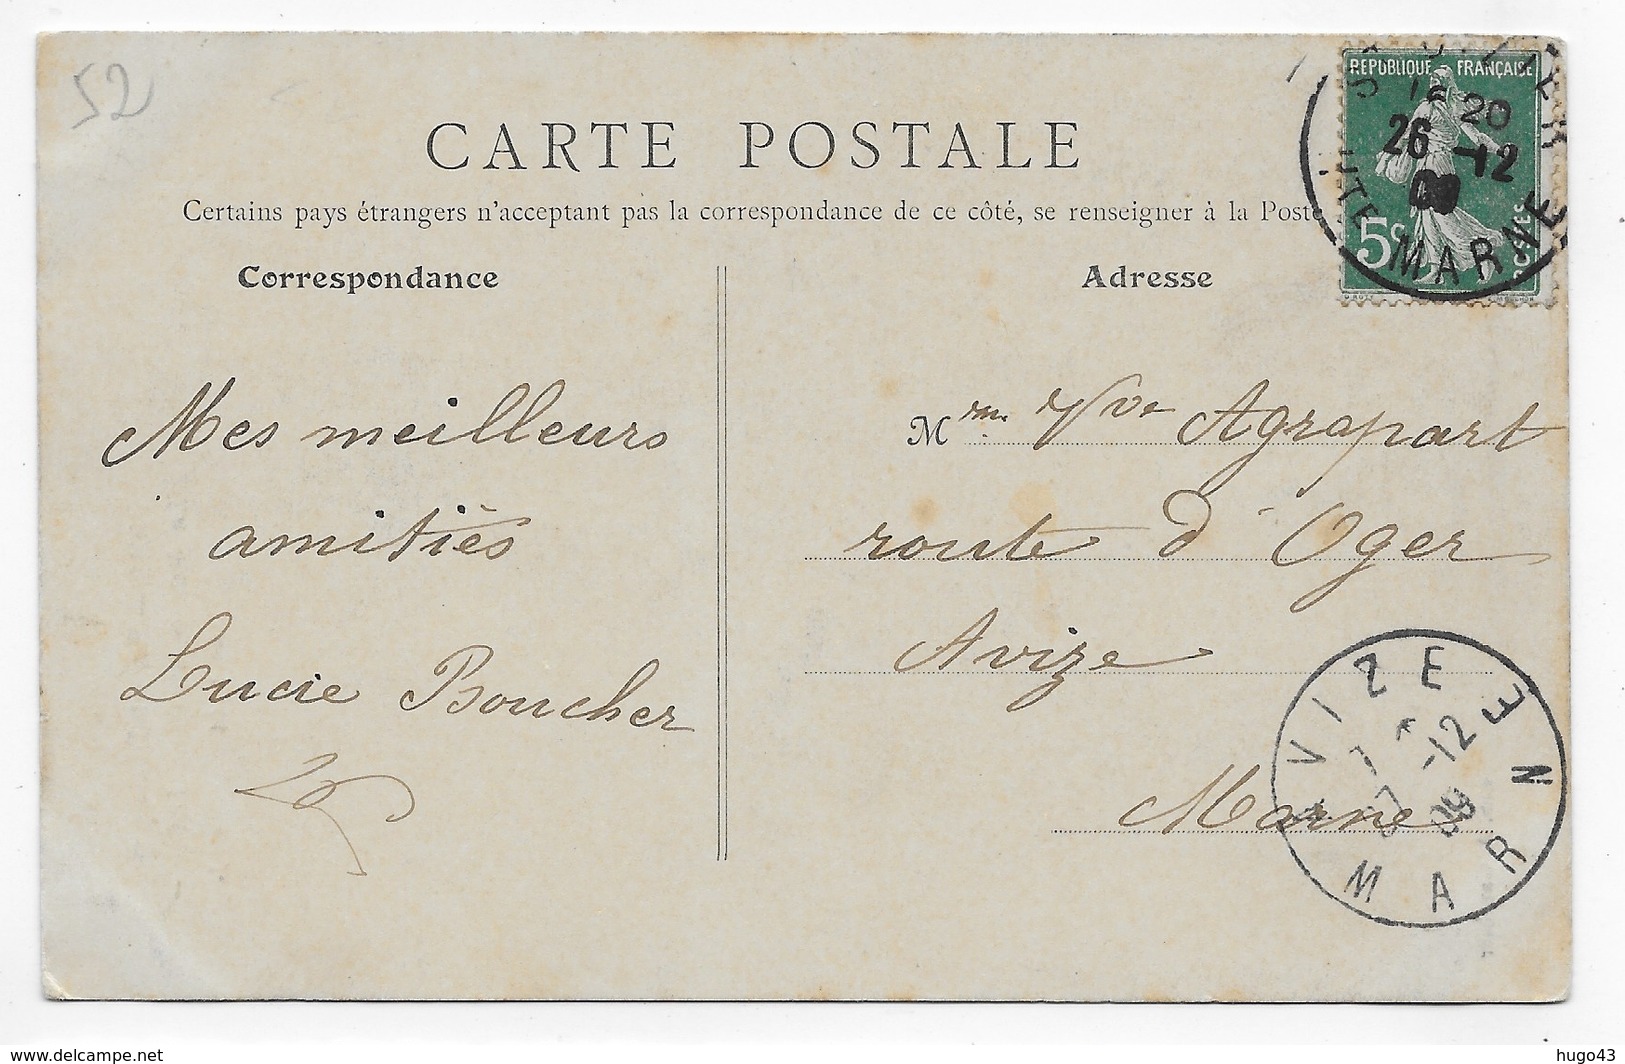 52
CARTE POSTALE
Certains pays étrangers n'acceptant pas la correspondance de ce côté, se renseigner à la Poste
Correspondance
Adresse
Mes meilleurs
amitiés
Lucie Boucher
Mme Vve Agrapart
route d'Oger
Avize
Marne
REPUBLIQUE FRANÇAISE
5c
POSTES
20
26 -12
09
HTE MARNE
AVIZE
-12
09
MARNE
www.delcampe.net
hugo43